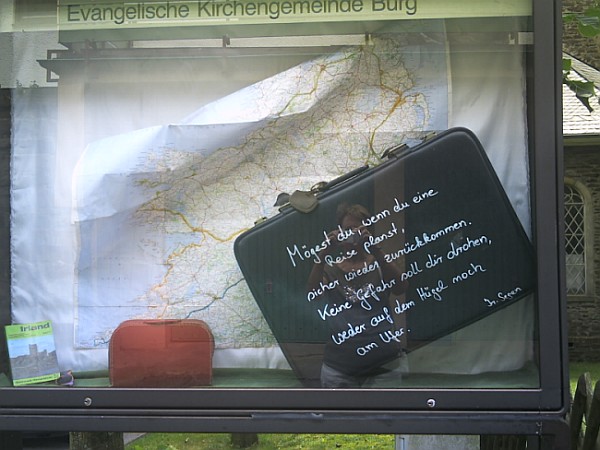 Evangelische Kirchengemeinde Burg
Mögest du, wenn du eine
Reise planst,
sicher wieder zurückkommen.
Keine Gefahr soll dir drohen,
weder auf dem Hügel noch
am Ufer.
Ir. Segen
Irland